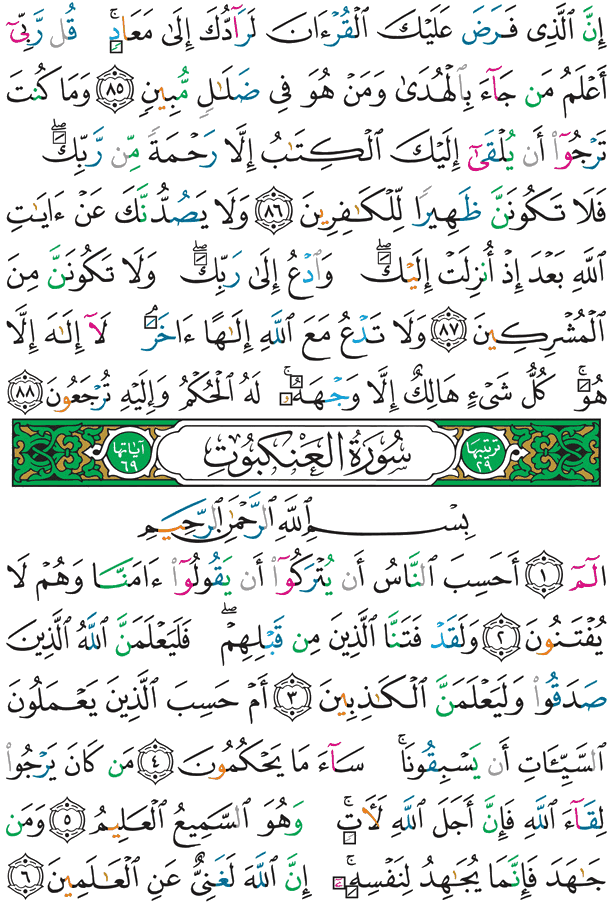 إِنَّ ٱلَّذِى فَرَضَ عَلَيْكَ ٱلْقُرْءَانَ لَرَآدُّكَ إِلَىٰ مَعَادٍ ۚ قُل رَّبِّىٓ
أَعْلَمُ مَن جَآءَ بِٱلْهُدَىٰ وَمَنْ هُوَ فِى ضَلَٰلٍ مُّبِينٍ ٨٥ وَمَا كُنتَ
تَرْجُوٓا۟ أَن يُلْقَىٰٓ إِلَيْكَ ٱلْكِتَٰبُ إِلَّا رَحْمَةً مِّن رَّبِّكَ ۖ
فَلَا تَكُونَنَّ ظَهِيرًا لِّلْكَٰفِرِينَ ٨٦ وَلَا يَصُدُّنَّكَ عَنْ ءَايَٰتِ
ٱللَّهِ بَعْدَ إِذْ أُنزِلَتْ إِلَيْكَ ۖ وَٱدْعُ إِلَىٰ رَبِّكَ ۖ وَلَا تَكُونَنَّ مِنَ
ٱلْمُشْرِكِينَ ٨٧ وَلَا تَدْعُ مَعَ ٱللَّهِ إِلَٰهًا ءَاخَرَ ۘ لَآ إِلَٰهَ إِلَّا
هُوَ ۚ كُلُّ شَىْءٍ هَالِكٌ إِلَّا وَجْهَهُۥ ۚ لَهُ ٱلْحُكْمُ وَإِلَيْهِ تُرْجَعُونَ ٨٨
ترتيبها ٢٩ سُورَةُ الْعَنْكَبُوتِ آياتها ٦٩
بِسْمِ ٱللَّهِ ٱلرَّحْمَٰنِ ٱلرَّحِيمِ
الٓمٓ ١ أَحَسِبَ ٱلنَّاسُ أَن يُتْرَكُوٓا۟ أَن يَقُولُوٓا۟ ءَامَنَّا وَهُمْ لَا
يُفْتَنُونَ ٢ وَلَقَدْ فَتَنَّا ٱلَّذِينَ مِن قَبْلِهِمْ ۖ فَلَيَعْلَمَنَّ ٱللَّهُ ٱلَّذِينَ
صَدَقُوا۟ وَلَيَعْلَمَنَّ ٱلْكَٰذِبِينَ ٣ أَمْ حَسِبَ ٱلَّذِينَ يَعْمَلُونَ
ٱلسَّيِّـَٔاتِ أَن يَسْبِقُونَا ۚ سَآءَ مَا يَحْكُمُونَ ٤ مَن كَانَ يَرْجُوا۟
لِقَآءَ ٱللَّهِ فَإِنَّ أَجَلَ ٱللَّهِ لَـَٔاتٍ ۚ وَهُوَ ٱلسَّمِيعُ ٱلْعَلِيمُ ٥ وَمَن
جَٰهَدَ فَإِنَّمَا يُجَٰهِدُ لِنَفْسِهِۦٓ ۚ إِنَّ ٱللَّهَ لَغَنِىٌّ عَنِ ٱلْعَٰلَمِينَ ٦